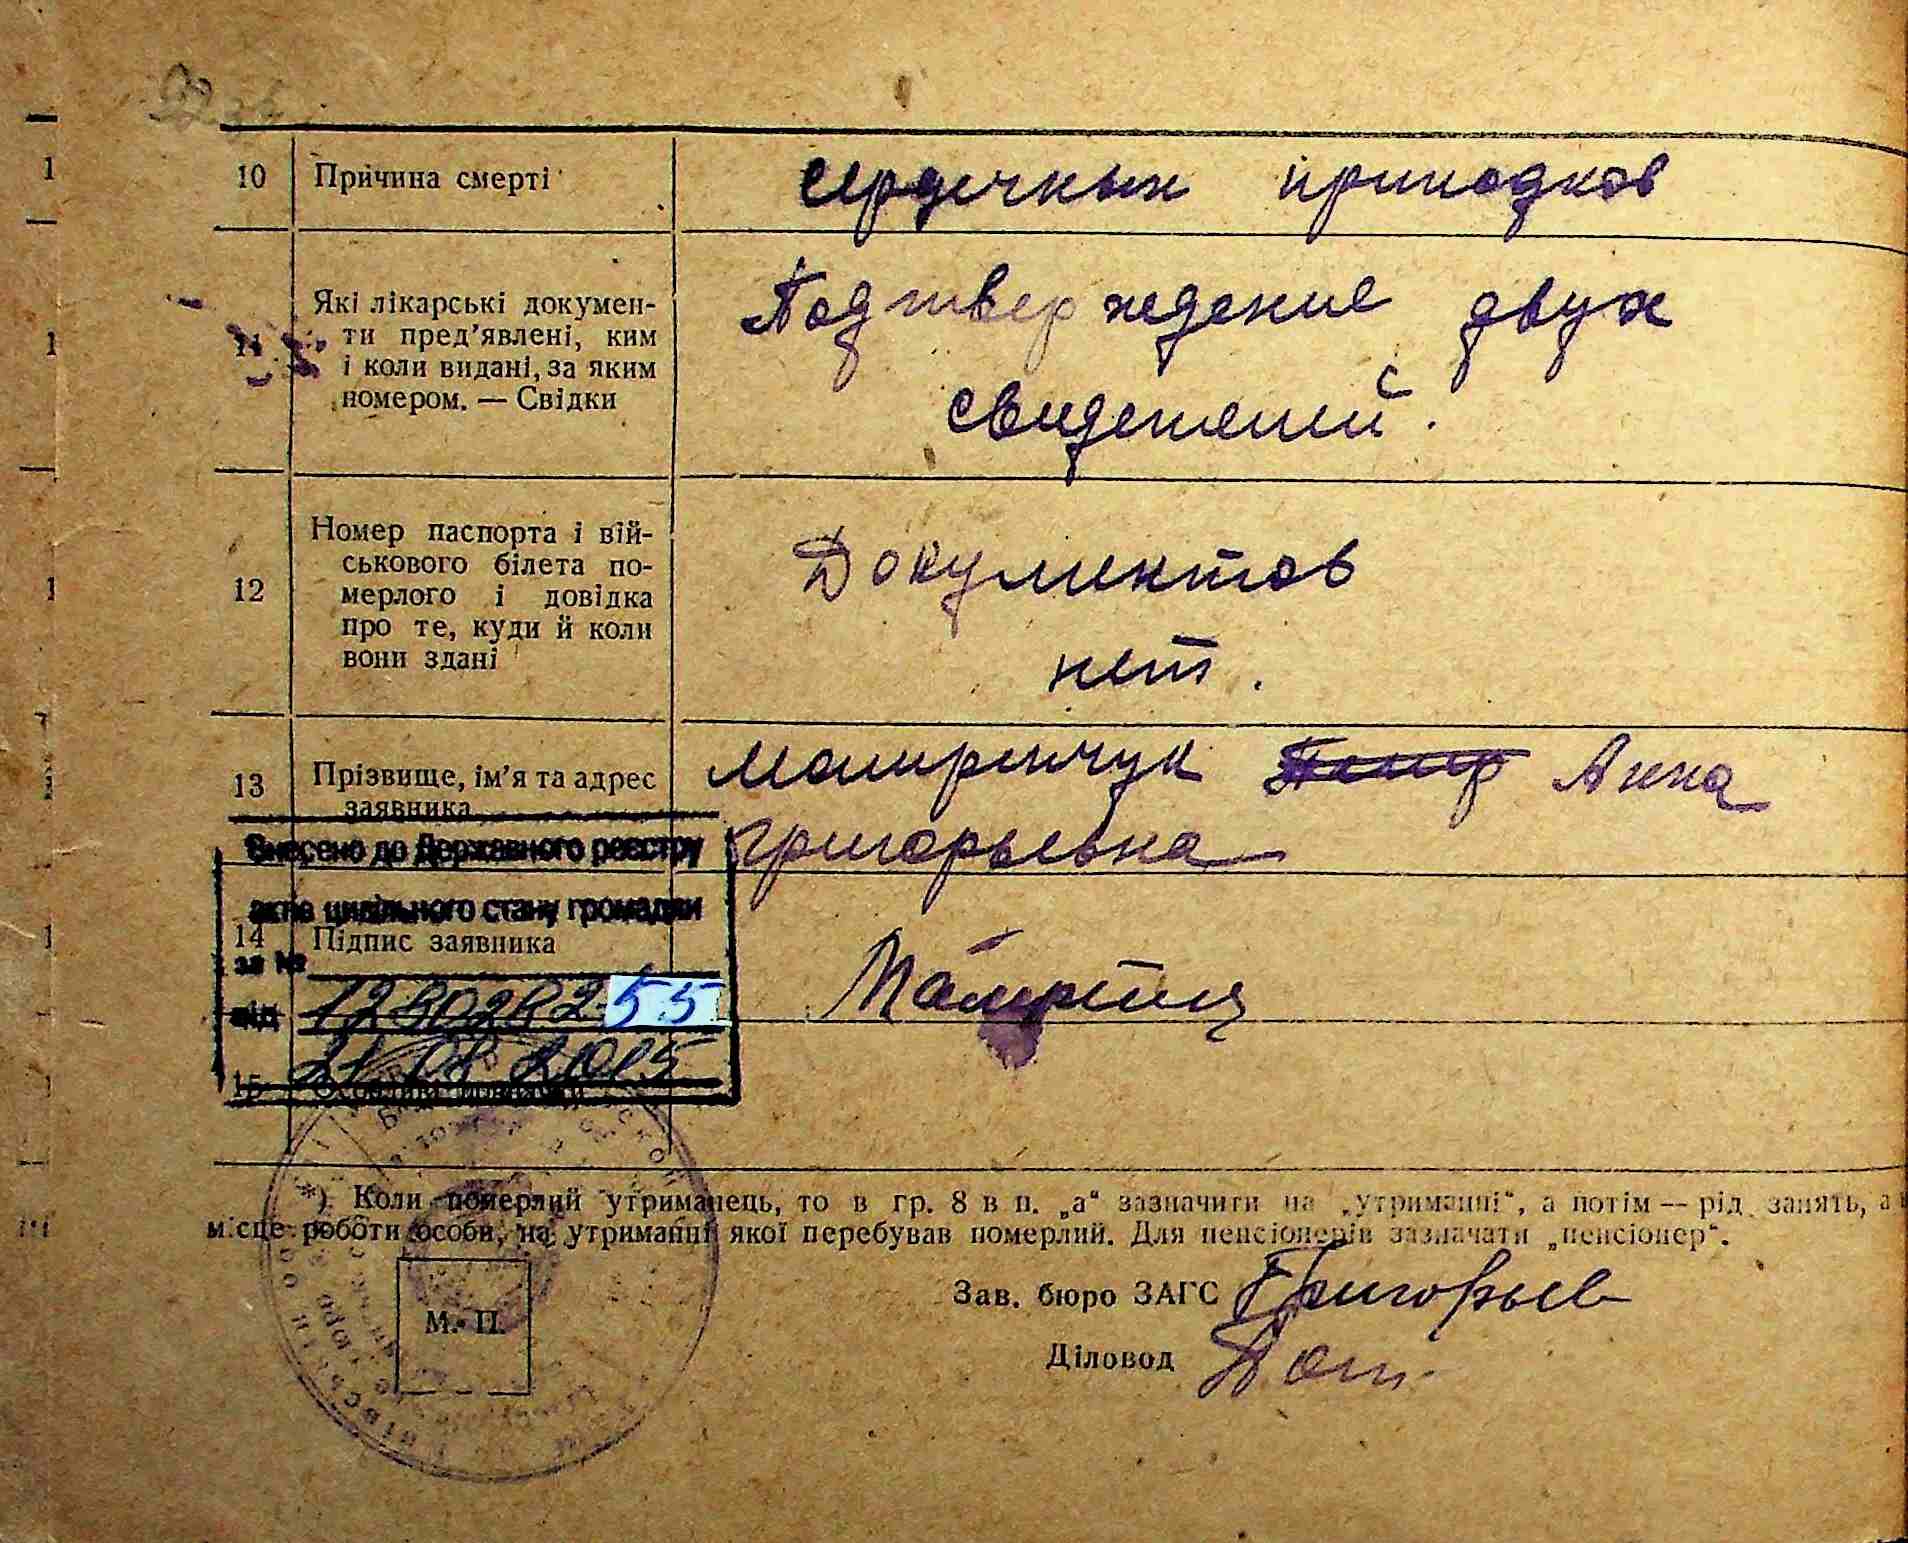 10 Причина смерті сердечных припадков
11 Які лікарські докумен-
ти пред'явлені, ким
і коли видані, за яким
номером. — Свідки
Подтверждение двух
свидетелей.
12 Номер паспорта і вій-
ськового білета по-
мерлого і довідка
про те, куди й коли
вони здані
Документов
нет.
13 Прізвище, ім'я та адрес
заявника
Анна
Григорьевна
Внесено до Державного реєстру
актів цивільного стану громадян
14 Підпис заявника
за №
від
21 08 2015
15 Особливі відмітки
*) Коли померлий утриманець, то в гр. 8 в п. „а“ зазначити на „утриманні“, а потім — рід занять, а
місце роботи особи, на утриманні якої перебував померлий. Для пенсіонерів зазначати „пенсіонер“.
Зав. бюро ЗАГС Григорьев
М. П.
Діловод